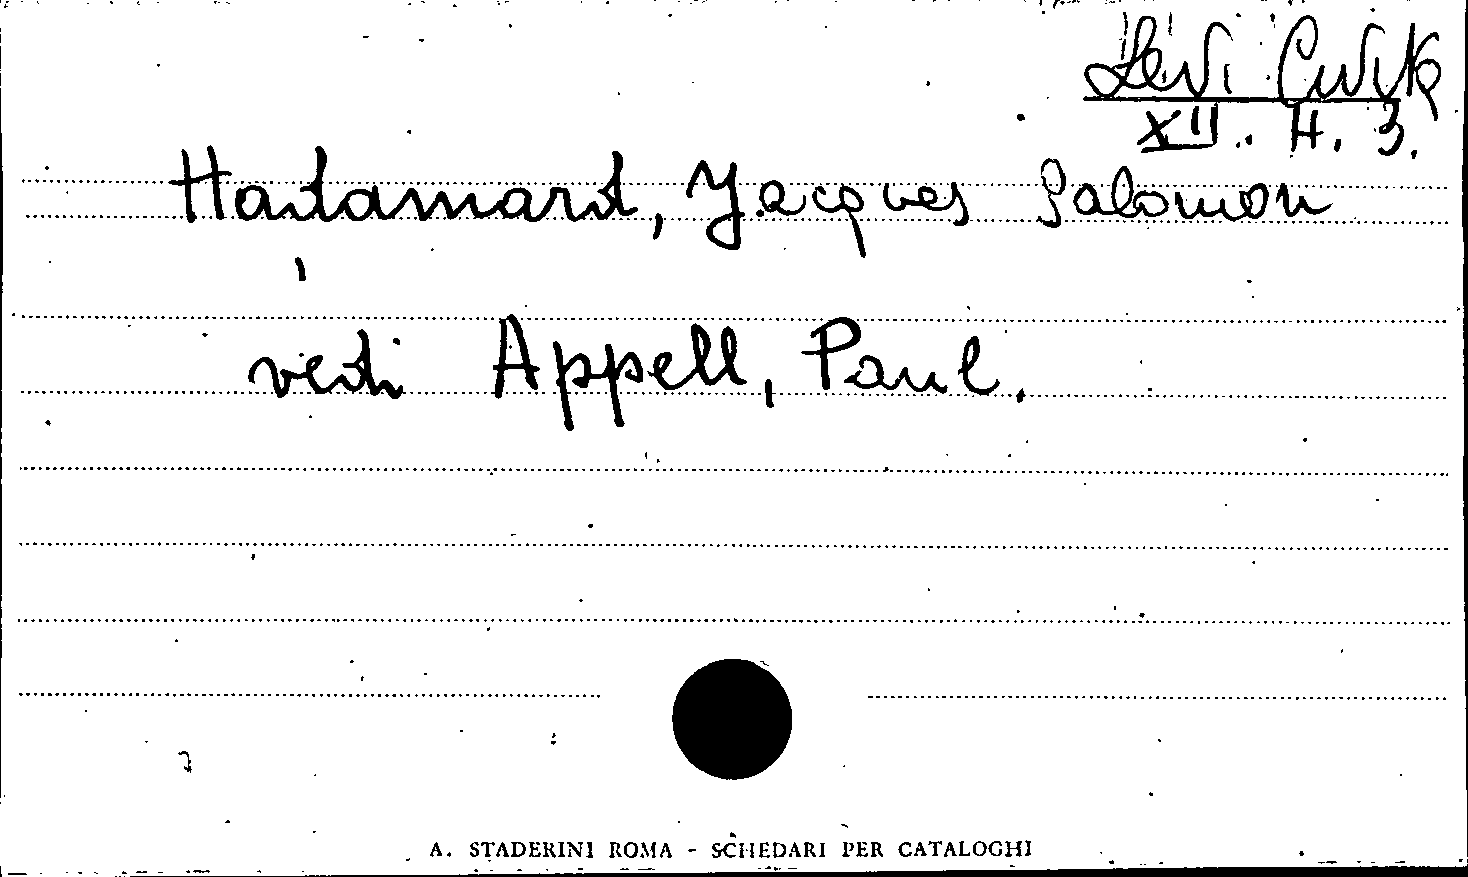 Levi Civita
XII. H. 3.
Hadamard, Jacques Salomon
vedi Appell, Paul.
A. STADERINI ROMA - SCHEDARI PER CATALOGHI